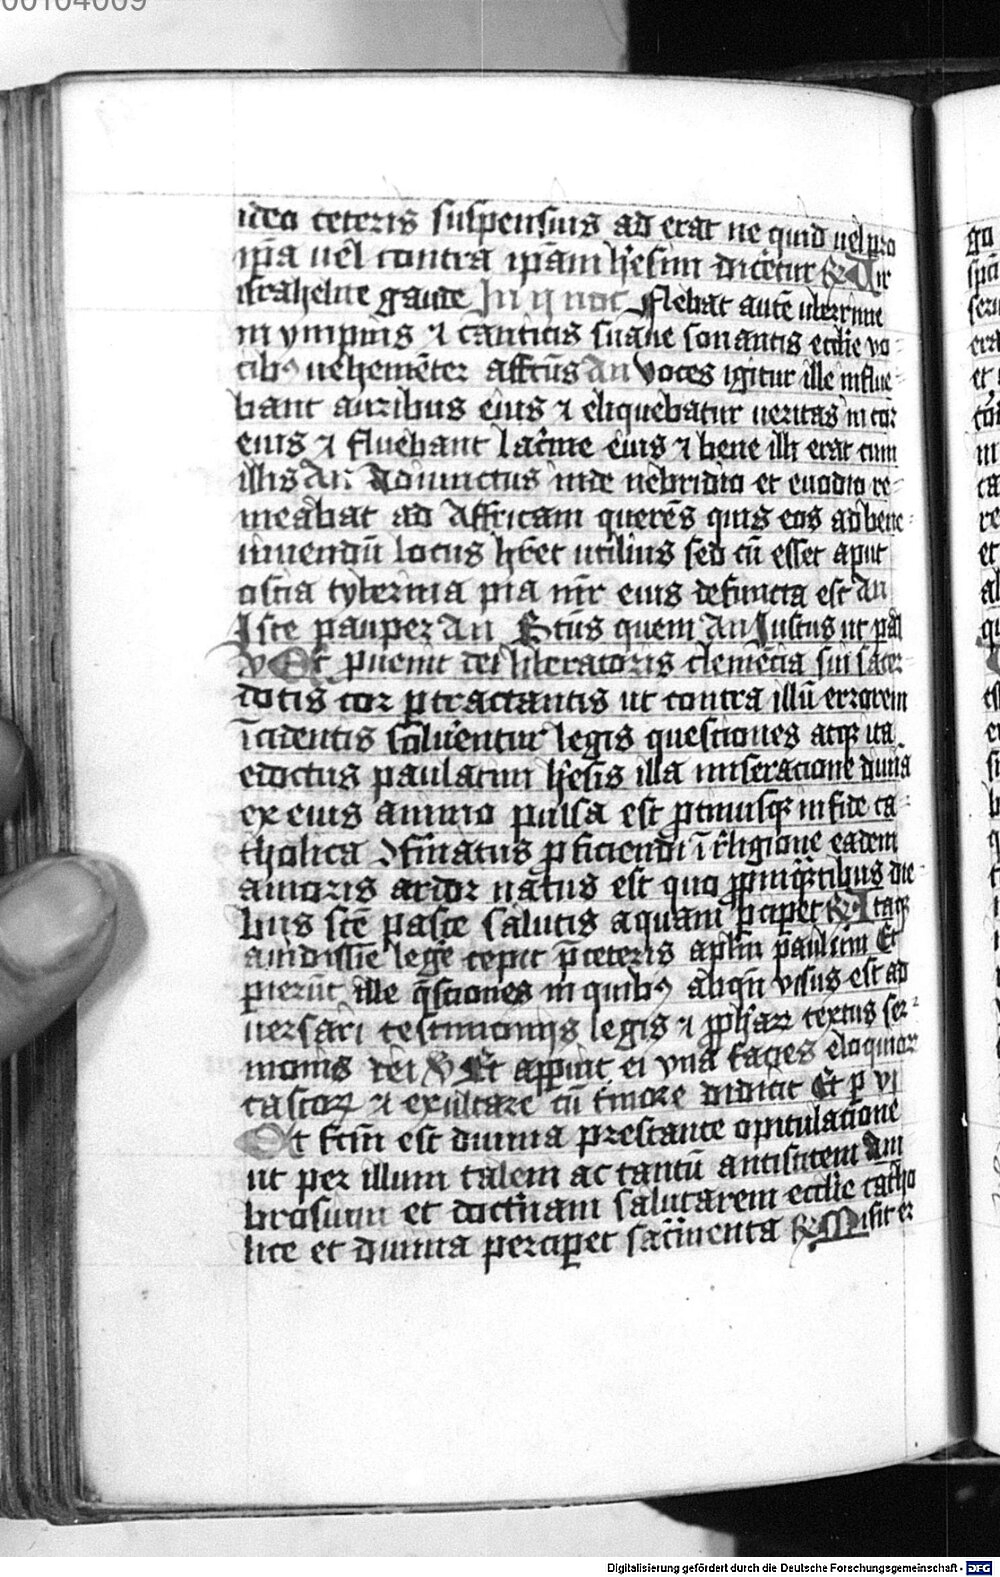 00104009
ideo ceteris suspensius ad erat ne quid uel pro
ip̄a uel contra ip̄am h̓esim dic̓etur ℟ Vir
israhelite gaude In ij noc Flebat autē uberrime
in ympnis ⁊ canticis suaue sonantis ecclīe vo-
cibꝰ uehemēter affcūs an Voces igitur ille influe-
bant auribus eius ⁊ eliquebatur ueritas in cor
eius ⁊ fluebant lac̓me eius ⁊ bene illi erat cum
illis An Adiunctus inde nebridio et euodio re-
meabat ad Affricam querēs quis eos ad bene-
uiuendū locus hr̄et utilius sed cū esset aput
ostia tyberina pia mr̄ eius defuncta est an
Iste pauper An Sctūs quem An Iustus ut pal
Et puenit dei liberatoris clemēcia sui sacer-
dotis cor ꝑtractantis ut contra illū errorem
īcidentis soluerentur legis questiones atqꝫ ita
edoctus paulatim h̓esis illa miseracione diuīa
ex eius animo pulsa est ꝓtinusqꝫ in fide ca-
tholica ꝯfirmatus ꝓficiendi ī religione eadem
amoris ardor natus est quo ꝓpinquātibus die-
bus scē pasce salutis aquam ꝑciperet ℟ Itaqꝫ
auidissīe legē cepit p̄ceteris aplm̄ paulum Et
perierūt ille q̄stiones in quibꝰ aliqn̄ visus est ad
uersari testimonijs legis ⁊ ꝓphāꝝ textus ser-
monis dei ℣ Et apparuit ei vna facies eloquioꝝ
castoꝝ ⁊ exultare cū tīmore didicit Et ꝑ vi
Et fcm̄ est diuina prestante opitulacione
ut per illum talem ac tantū antistitem Am
brosium et doctrinam salutarem ecclīe catho
lice et diuina perciperet sac̓menta ℟ Misit er
Digitalisierung gefördert durch die Deutsche Forschungsgemeinschaft - DFG